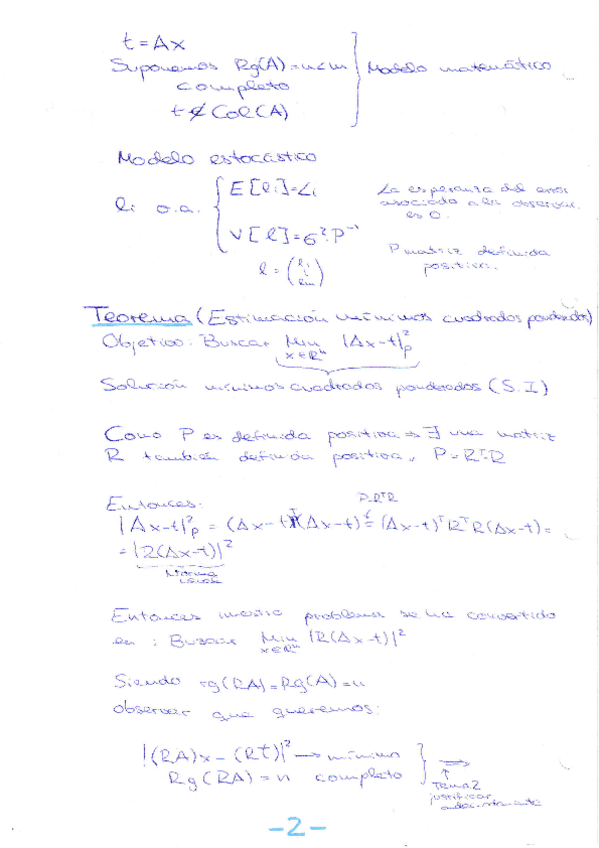 t = Ax
Suponemos Rg(A) = n < m
completo
t ∉ Col(A)
Modelo matemático
Modelo estocástico
li o.a. { E[li] = Li
V[l] = σ²·P⁻¹
l = (li lm)
La esperanza del error
asociado a la observac.
es 0.
P matriz definida
positiva.
Teorema (Estimación mínimos cuadrados ponderados)
Objetivo: Buscar Min x∈Rⁿ |Ax-t|²p
Solución mínimos cuadrados ponderados (S.I)
Como P es definida positiva ⇒ ∃ una matriz
R también definida positiva, P = RᵀR
Entonces: P=RᵀR
|Ax-t|²p = (Ax-t)ᵀP(Ax-t) = (Ax-t)ᵀRᵀR(Ax-t) =
= |R(Ax-t)|²
Norma
usual
Entonces nuestro problema se ha convertido
en: Buscar Min x∈Rⁿ |R(Ax-t)|²
Siendo rg(RA) = Rg(A) = n
observar que queremos:
|(RA)x - (Rt)|² → mínimo
Rg(RA) = n completo } ⇒
Tema 2
justificar
-2-